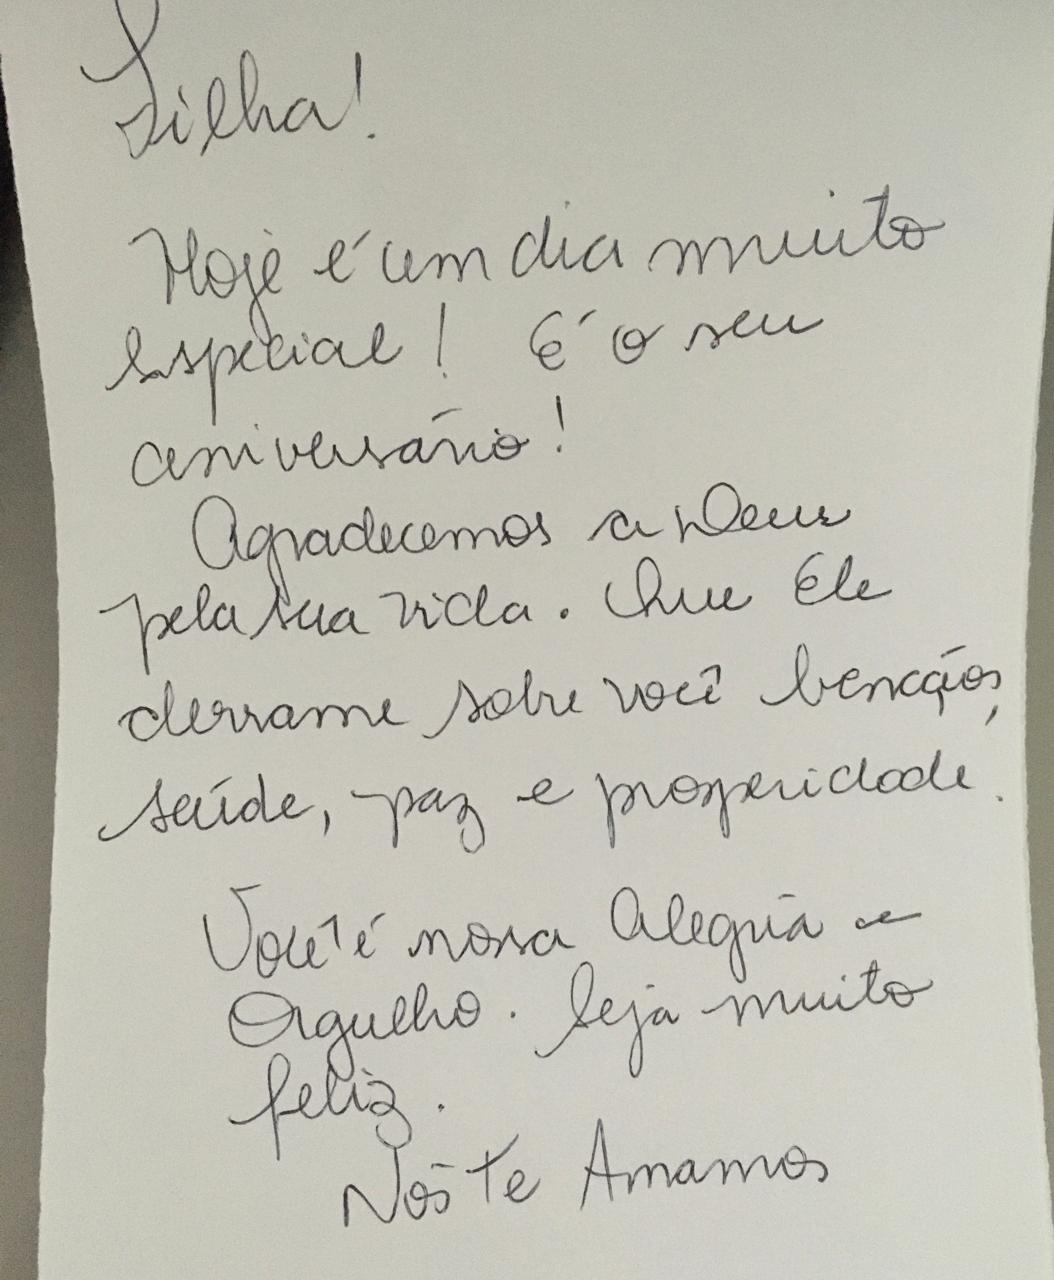 Filha!
Hoje é um dia muito
Especial! É o seu
aniversário!
Agradecemos a Deus
pela sua vida. Que Ele
derrame sobre você bençãos,
saúde, paz e prosperidade.
Você é nossa Alegria e
Orgulho. Seja muito
feliz.
Nós Te Amamos